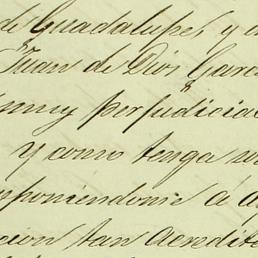 de Guadalupe, y a
Juan de Dios Garc
muy perjudicial
y como tenga
mponiendome á
cion tan acredit